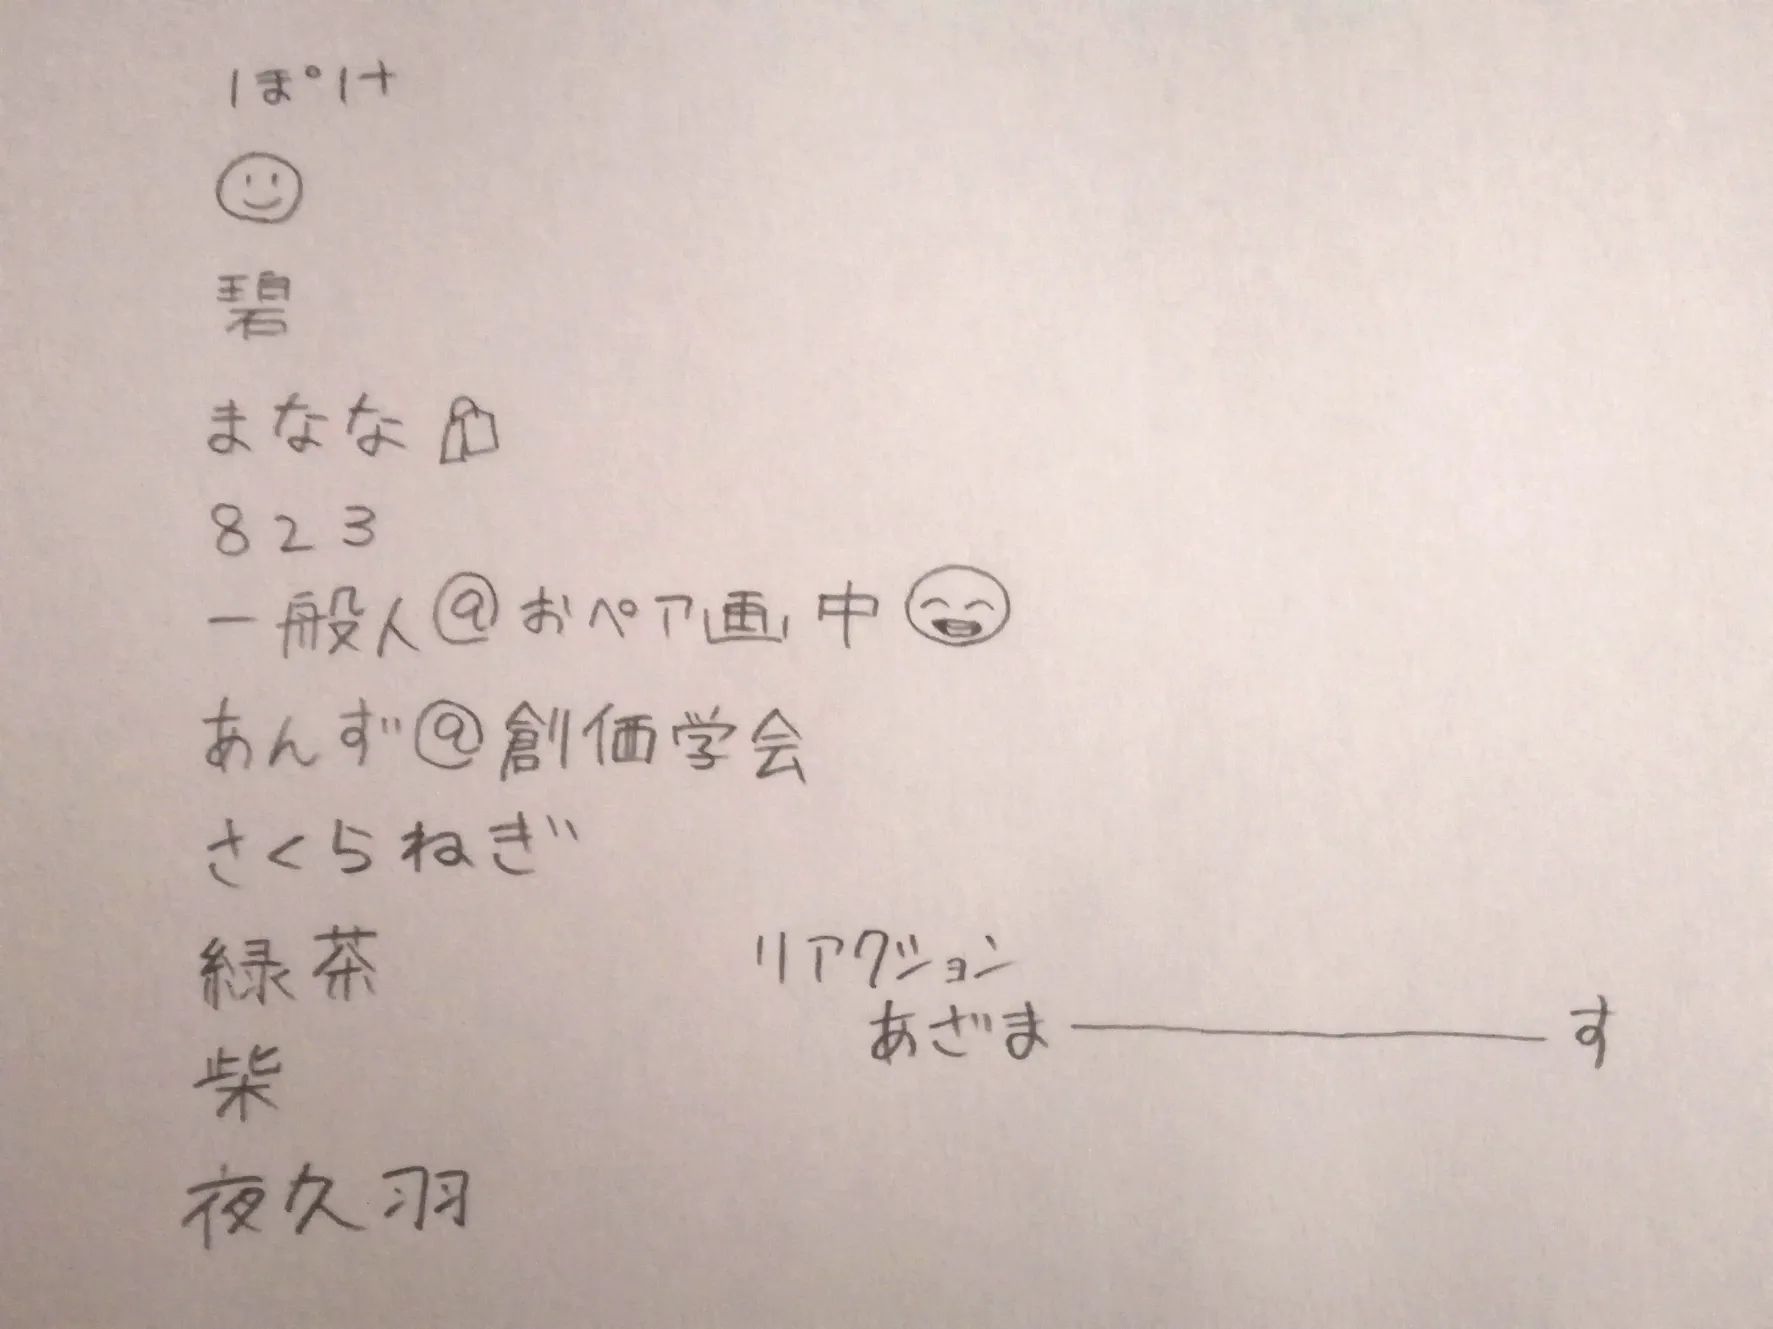 ぽけ
☺
碧
まなな🛍
823
一般人@おペア画中😄
あんず@創価学会
さくらねぎ
緑茶
柴
夜久羽
リアクション
あざま――――――す